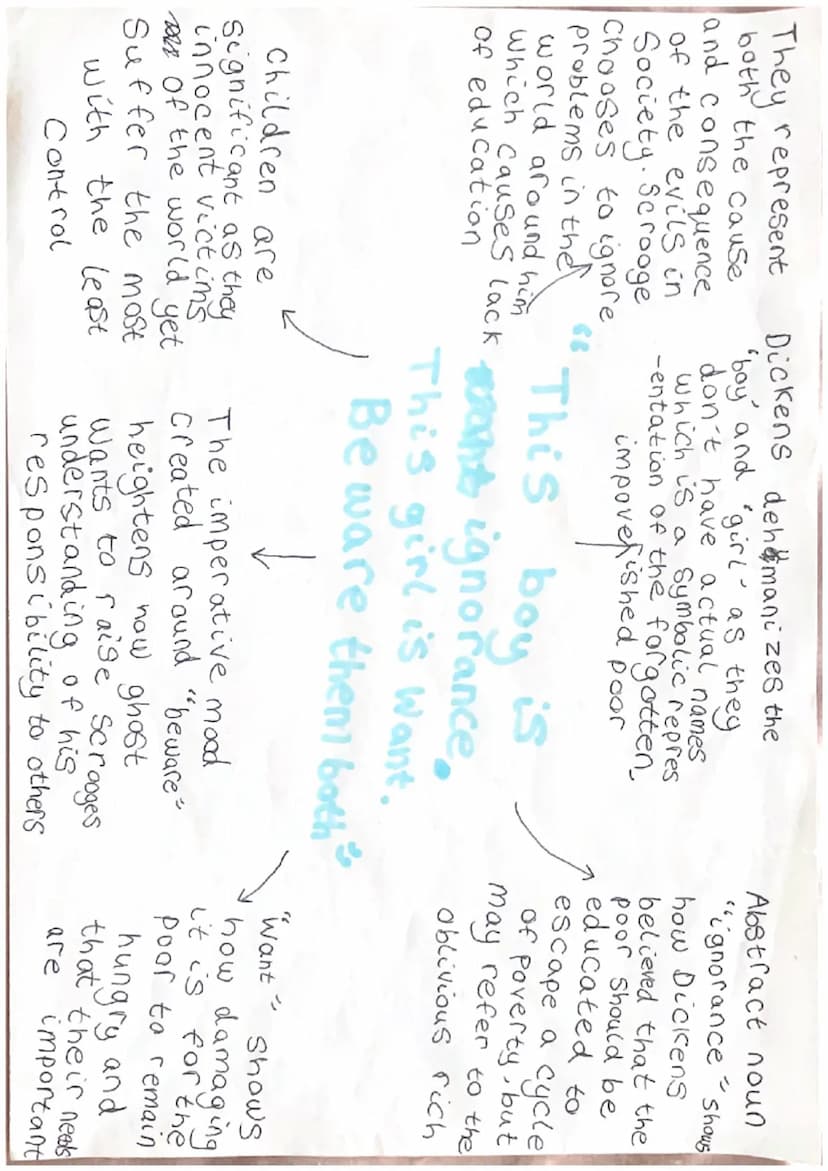 They represent
both the cause
and consequence
of the evils in
Society. Scrooge
chooses to ignore
problems in the
world around him
which causes lack
of education
Dickens dehumanizes the
'boy' and 'girl' as they
don't have actual names
which is a symbolic repres
-entation of the forgotten,
impoverished poor
Abstract noun
"ignorance" shows
how Dickens
believed that the
poor should be
educated to
escape a cycle
of poverty, but
may refer to the
oblivious rich
"This boy is
ignorance.
This girl is want.
Beware them both"
Children are
significant as they
innocent victims
of the world yet
Suffer the most
with the least
Control
The imperative mood
created around "beware"
heightens how ghost
wants to raise scrooges
understanding of his
responsibility to others
"Want" shows
how damaging
it is for the
poor to remain
hungry and
that their needs
are important